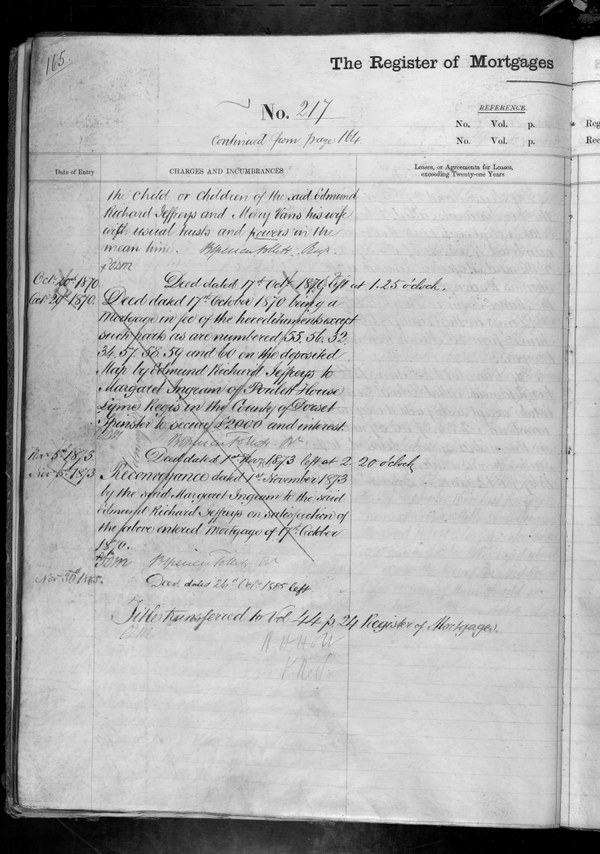 165.
The Register of Mortgages
No. 217
Continued from page 164
REFERENCE.
No. Vol. p.
No. Vol. p.
Date of Entry
CHARGES AND INCUMBRANCES
Leases, or Agreements for Leases,
exceeding Twenty-one Years
the Child or Children of the said Edmund
Richard Jeffreys and Mary Vans his wife
with usual trusts and powers in the
mean time.
Deed dated 17th Octr 1870 left at 1.25 o'clock.
Octr 29th 1870. Deed dated 17th October 1870 being a
Mortgage in fee of the hereditaments except
such parts as are numbered 55, 56, 32,
34, 57, 58, 59 and 60 on the deposited
Map by Edmund Richard Jeffreys to
Margaret Ingram of Poulett House
Lyme Regis in the County of Dorset
Spinster to secure £2000 and interest
Novr 5th 1873 Deed dated 1st Novr 1873 left at 2.20 o'clock
1873 Reconveyance dated 1st November 1873
by the said Margaret Ingram to the said
Edmund Richard Jeffreys on satisfaction of
the above entered Mortgage of 17th October
1870.
1885. Deed dated 26th Octr 1885 left
Title transferred to Vol 44 p 24 Register of Mortgages.